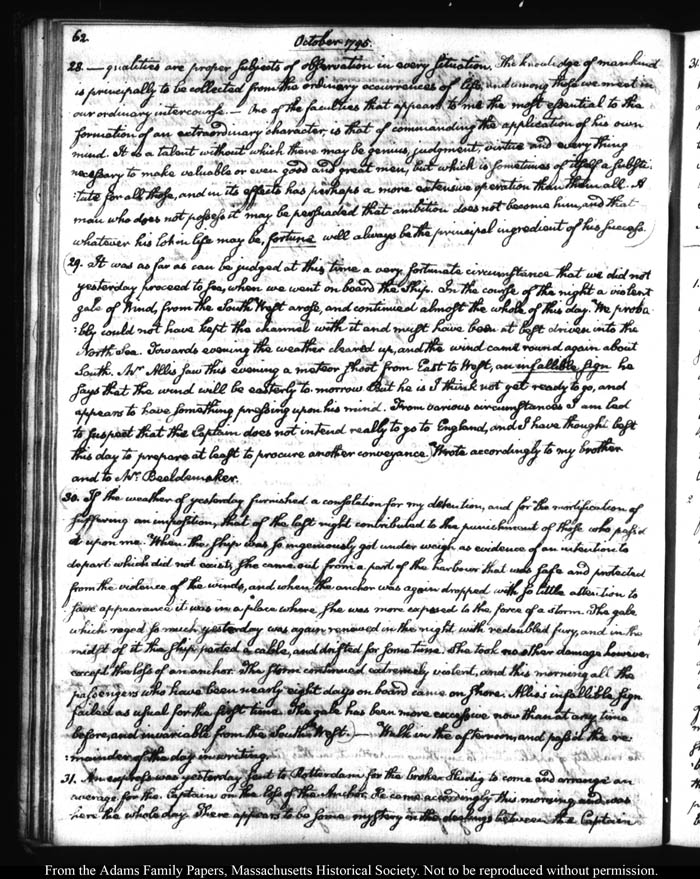 62.
October 1795.
28. — qualities are proper subjects of observation in every situation. The knowledge of mankind
is principally to be collected from the ordinary occurrences of life, and among those we meet in
our ordinary intercourse. — One of the faculties that appears to me the most essential to the
formation of an extraordinary character, is that of commanding the application of his own
mind. It is a talent without which there may be genius, judgment, virtue and every thing
necessary to make valuable or even good and great men, but which is sometimes of itself a substi:
:tute for all those, and in its effects has perhaps a more extensive operation than them all. A
man who does not possess it may be persuaded that ambition does not become him, and that
whatever his lot in life may be, fortune will always be the principal ingredient of his success.
29. It was as far as can be judged at this time a very fortunate circumstance that we did not
yesterday proceed to sea, when we went on board the Ship. In the course of the night a violent
gale of Wind, from the South West arose, and continued almost the whole of this day. We proba
:bly could not have kept the channel with it and must have been at best driven into the
North Sea. Towards evening the weather cleared up, and the wind came round again about
South. Mr. Allis saw this evening a meteor shoot from East to West, an infallible sign he
says that the wind will be easterly to-morrow. But he is I think not yet ready to go, and
appears to have something pressing upon his mind. From various circumstances I am led
to suspect that the Captain does not intend really to go to England, and I have thought best
this day to prepare at least to procure another conveyance. Wrote accordingly to my brother
and to Mr. Beeldemaker.
30. If the weather of yesterday furnished a consolation for my detention, and for the mortification of
suffering an imposition, that of the last night contributed to the punishment of those who pass'd
it upon me. When the Ship was so ingeniously got under weigh as evidence of an intention to
depart which did not exist, she came out from a part of the harbour that was safe and protected
from the violence of the winds, and when the anchor was again dropped with so little attention to
save appearance it was in a place where she was more exposed to the force of a storm. The gale
which raged so much yesterday was again renewed in the night with redoubled fury, and in the
midst of it the Ship parted a cable, and drifted for some time. She took no other damage however
except the loss of an anchor. The storm continued extremely violent, and this morning all the
passengers who have been nearly eight days on board came on shore. Allis's infallible sign
failed as usual for the first time. The gale has been more excessive now than at any time
before, and invariable from the South West. — Walk in the afternoon, and pass'd the re
:mainder of the day in writing.
31. An express was yesterday sent to Rotterdam for the broker to come and arrange an
average for the Captain on the loss of the Anchor. He came accordingly this morning and was
here the whole day. There appears to be some mystery in the dealings between the Captain
From the Adams Family Papers, Massachusetts Historical Society. Not to be reproduced without permission.